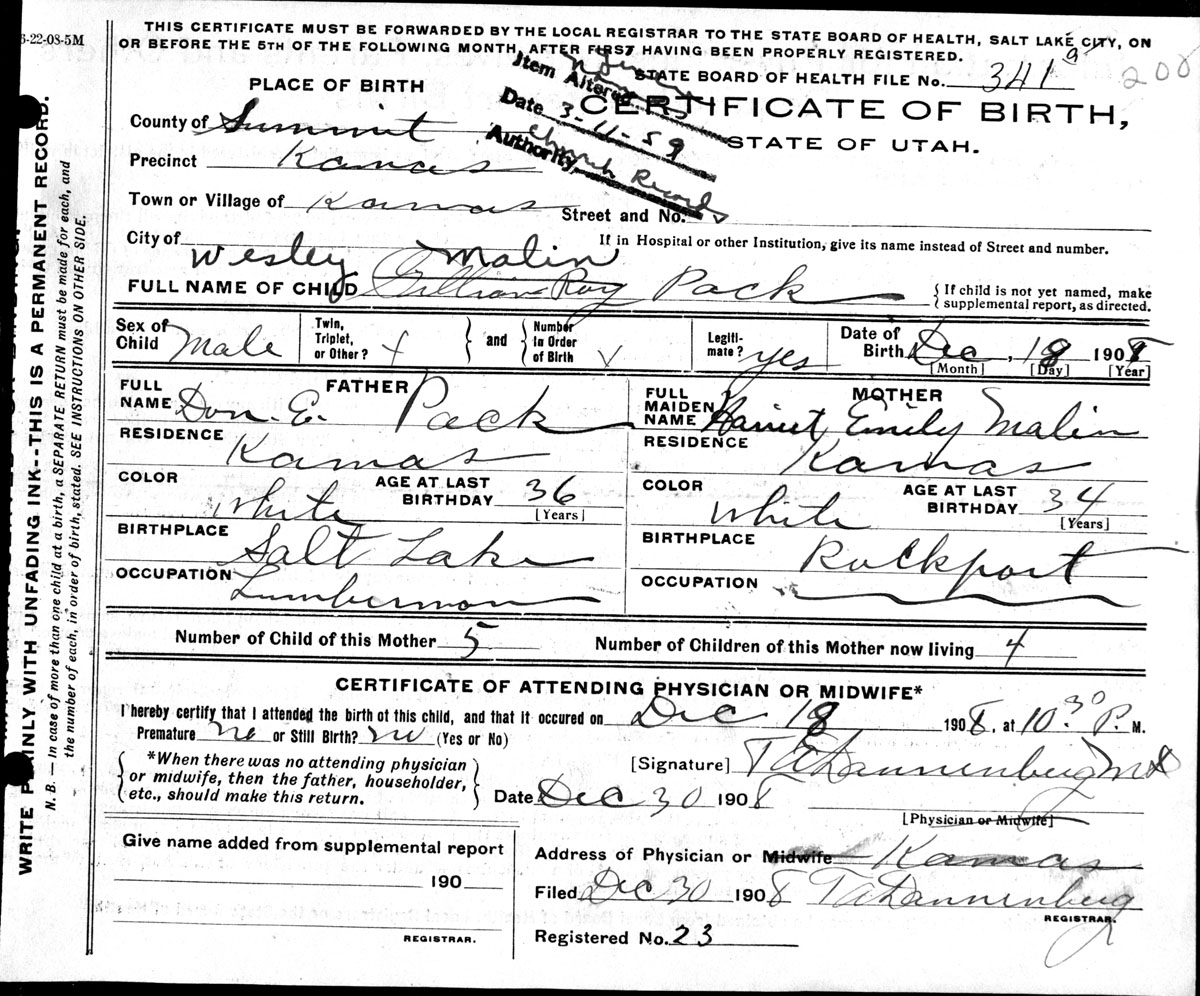 6-22-08-5M
THIS CERTIFICATE MUST BE FORWARDED BY THE LOCAL REGISTRAR TO THE STATE BOARD OF HEALTH, SALT LAKE CITY, ON
OR BEFORE THE 5TH OF THE FOLLOWING MONTH, AFTER FIRST HAVING BEEN PROPERLY REGISTERED.
STATE BOARD OF HEALTH FILE No. 341 9
200
Item Altered Name
Date 3-11-59
Authority Church Record
CERTIFICATE OF BIRTH,
STATE OF UTAH.
PLACE OF BIRTH
County of Summit
Precinct Kamas
Town or Village of Kamas Street and No.
City of If in Hospital or other Institution, give its name instead of Street and number.
Wesley Malin
FULL NAME OF CHILD Gillian Roy Pack {If child is not yet named, make
supplemental report, as directed.
Sex of Child Male Twin, Triplet, or Other? and Number in Order of Birth Legiti-mate? yes Date of Birth Dec, 18 1908
[Month] [Day] [Year]
FATHER
FULL NAME Don. E. Pack
RESIDENCE Kamas
COLOR White AGE AT LAST BIRTHDAY 36
[Years]
BIRTHPLACE Salt Lake
OCCUPATION Lumberman
MOTHER
FULL MAIDEN NAME Harriet Emily Malin
RESIDENCE Kamas
COLOR White AGE AT LAST BIRTHDAY 34
[Years]
BIRTHPLACE Rockport
OCCUPATION
Number of Child of this Mother 5 Number of Children of this Mother now living 4
CERTIFICATE OF ATTENDING PHYSICIAN OR MIDWIFE*
I hereby certify that I attended the birth of this child, and that it occured on Dec. 18 1908, at 10.30 P. M.
Premature no or Still Birth? no (Yes or No)
*When there was no attending physician
or midwife, then the father, householder,
etc., should make this return.
[Signature] T A Dannenberg M D
Date Dec 30 1908
[Physician or Midwife]
Give name added from supplemental report
190
REGISTRAR.
Address of Physician or Midwife Kamas
Filed Dec 30 1908 T A Dannenberg
REGISTRAR.
Registered No. 23
WRITE PLAINLY WITH UNFADING INK--THIS IS A PERMANENT RECORD.
N. B. — In case of more than one child at a birth, a SEPARATE RETURN must be made for each, and
the number of each, in order of birth, stated. SEE INSTRUCTIONS ON OTHER SIDE.